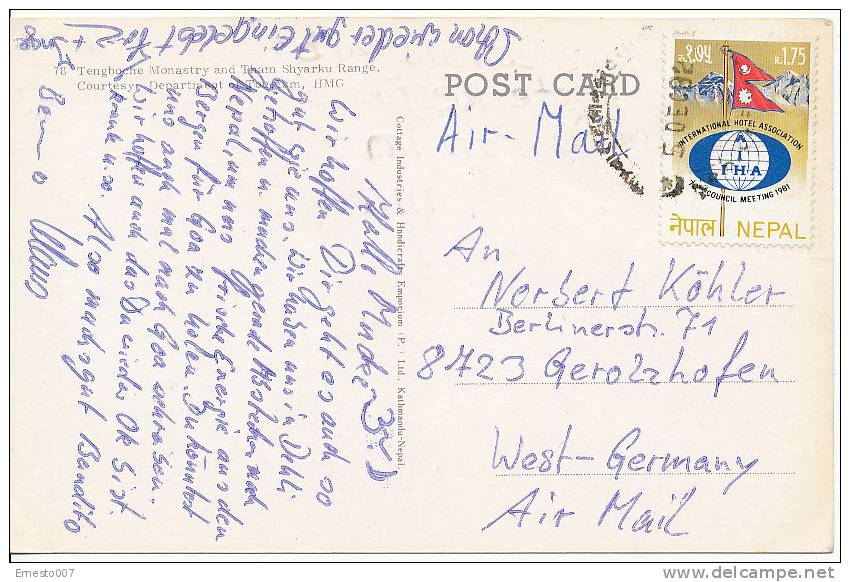 78 Tengboche Monastry and Tham Shyarku Range.
Courtesy: Department of Tourism, HMG
POST CARD
Air-Mail
Cottage Industries & Handicrafts Emporium (P.) Ltd. Kathmandu-Nepal.
रु.१.७५
R.1.75
INTERNATIONAL HOTEL ASSOCIATION
IHA
COUNCIL MEETING 1981
नेपाल NEPAL
An
Norbert Köhler
Berlinerstr. 71
8723 Gerolzhofen
West-Germany
Air Mail
Hallo
Wir hoffen Dir geht es auch so
gut wie uns. Wir haben uns in Delhi
getroffen u. machen gerade Abstecher nach
Nepal, um uns frische Energie aus den
Bergen für Goa zu holen. Du könntest
uns auch mal nach Goa schreiben.
Wir hoffen auch das Du wieder OK bist.
Also machs gut Bandito
Benno
Klaus
Schon wieder gut eingelebt
Ernesto007
delcampe.net